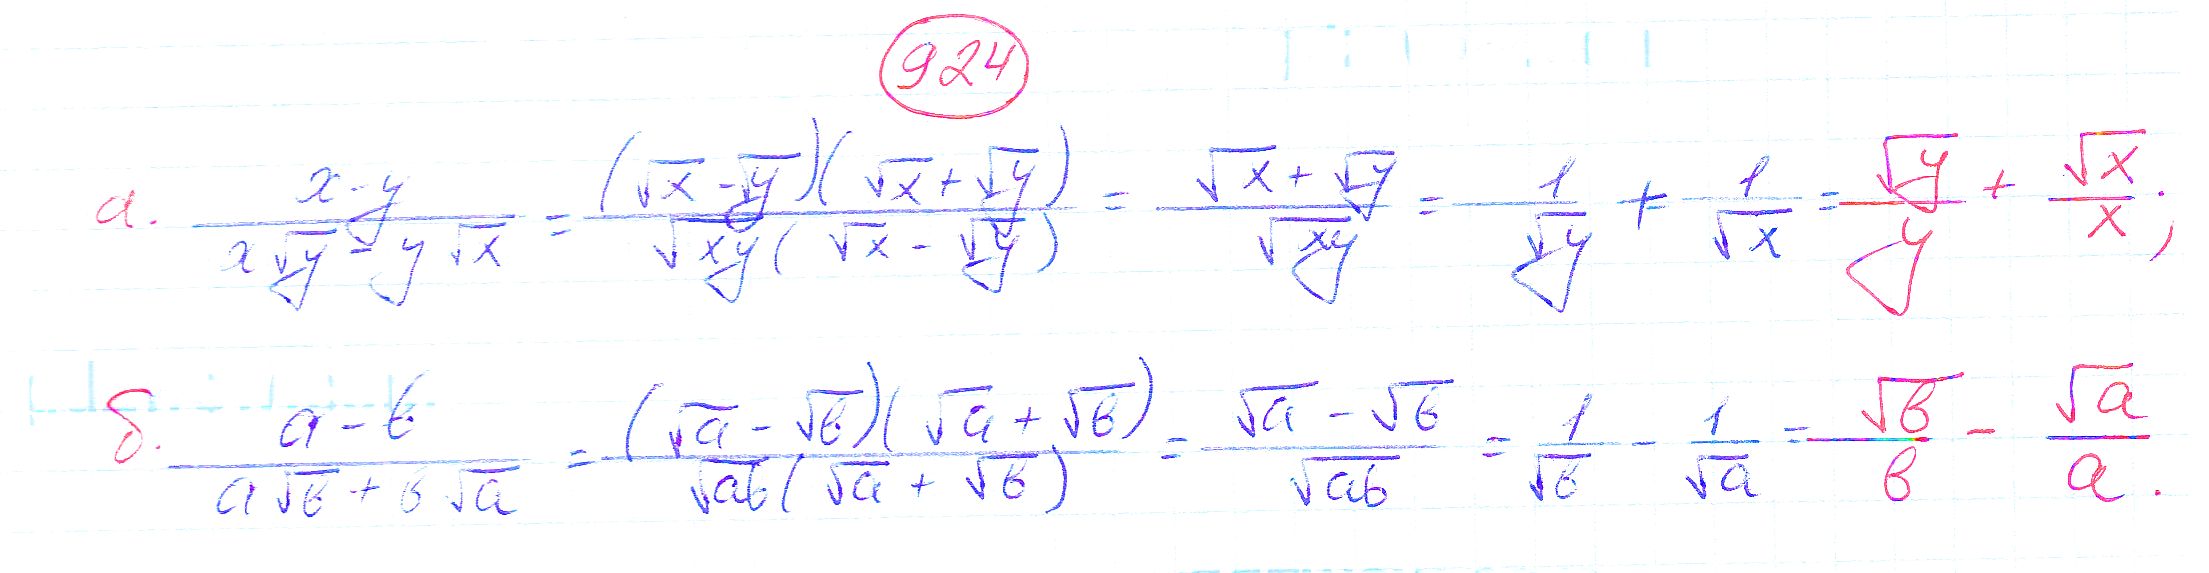 924
а. \frac{x-y}{x\sqrt{y}-y\sqrt{x}} = \frac{(\sqrt{x}-\sqrt{y})(\sqrt{x}+\sqrt{y})}{\sqrt{xy}(\sqrt{x}-\sqrt{y})} = \frac{\sqrt{x}+\sqrt{y}}{\sqrt{xy}} = \frac{1}{\sqrt{y}} + \frac{1}{\sqrt{x}} = \frac{\sqrt{y}}{y} + \frac{\sqrt{x}}{x};
б. \frac{a-b}{a\sqrt{b}+b\sqrt{a}} = \frac{(\sqrt{a}-\sqrt{b})(\sqrt{a}+\sqrt{b})}{\sqrt{ab}(\sqrt{a}+\sqrt{b})} = \frac{\sqrt{a}-\sqrt{b}}{\sqrt{ab}} = \frac{1}{\sqrt{b}} - \frac{1}{\sqrt{a}} = \frac{\sqrt{b}}{b} - \frac{\sqrt{a}}{a}.